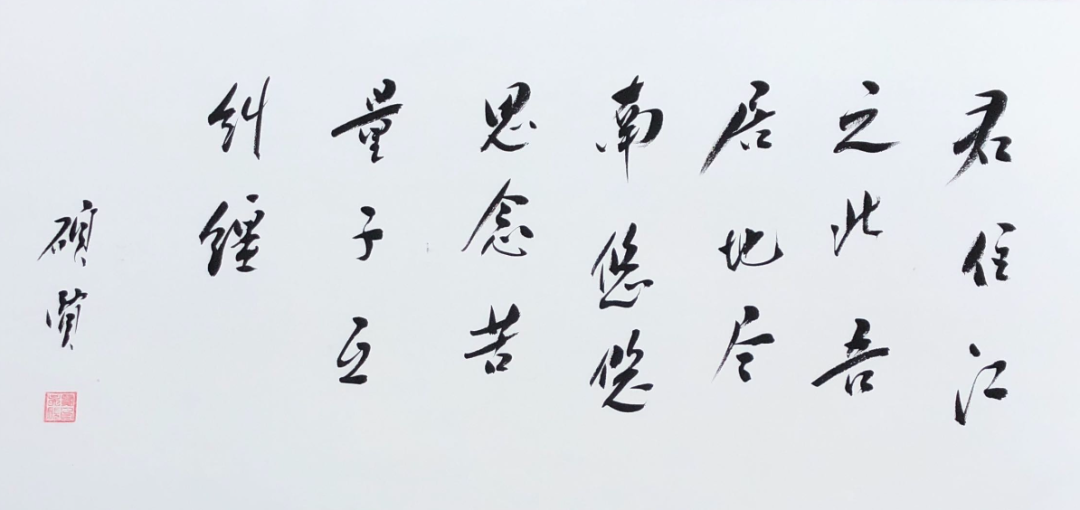 君住江
之北吾
居地尽
南悠悠
思念苦
量子互
纠缠
硕贤